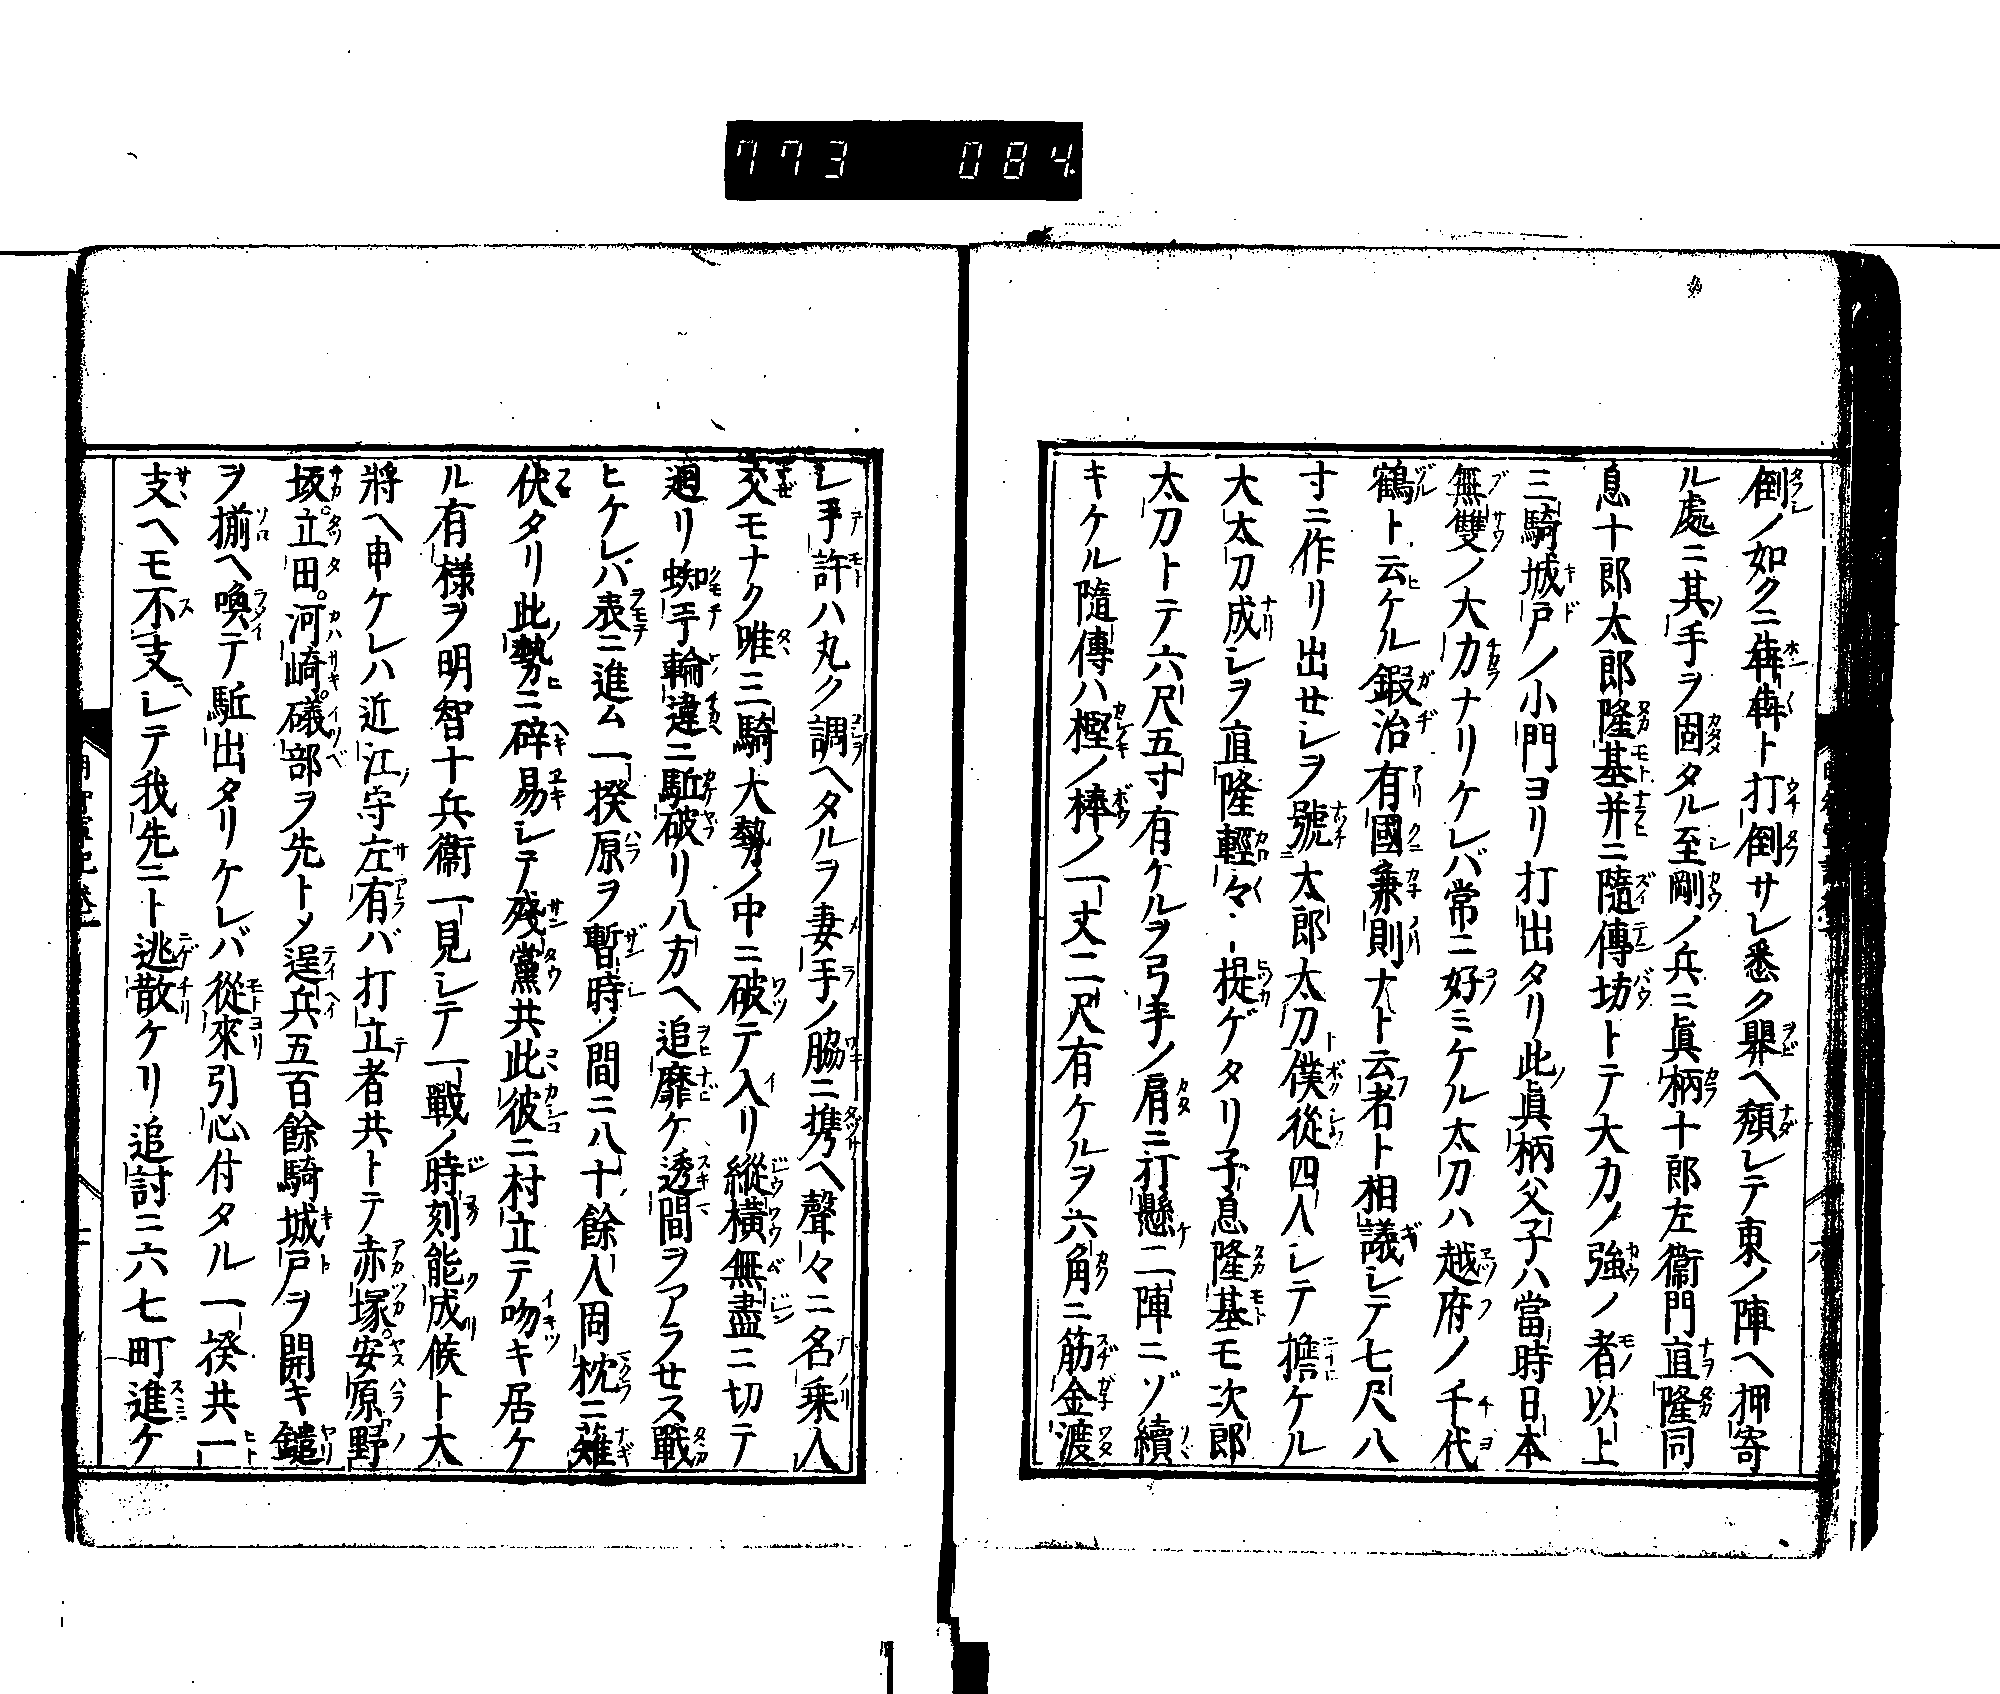 773 084
倒ノ如クニ犇犇ト打倒サレ悉ク昇ヘ頽レテ東ノ陣ヘ押寄
ル處ニ其手ヲ固タル至剛ノ兵ニ眞柄十郎左衞門直隆同
息十郎太郎隆基并ニ隨傳坊トテ大力ノ強ノ者以上
三騎城戸ノ小門ヨリ打出タリ此眞柄父子ハ當時日本
無雙ノ大力ナリケレバ常ニ好ミケル太刀ハ越府ノ千代
鶴ト云ケル鍜治有國兼則ナト云者ト相議レテ七尺八
寸ニ作リ出セレヲ號太郎太刀僕從四人レテ擔ケル
大太刀成レヲ直隆輕々提ゲタリ子息隆基モ次郎
太刀トテ六尺五寸有ケルヲ弓手ノ肩ニ打懸二陣ニゾ續
キケル隨傳ハ樫ノ棒ノ一丈二尺有ケルヲ六角ニ筋金渡
レ手許ハ丸ク調ヘタルヲ妻手ノ脇ニ携ヘ聲々ニ名乗入
交モナク唯三騎大勢ノ中ニ破テ入リ縱横無盡ニ切テ
廻リ蜘手輪違ニ駈破リ八方ヘ追靡ケ透間ヲアラセス戰
ヒケレバ表ニ進ム一揆原ヲ暫時ノ間ニ八十餘人同枕ニ薙
伏タリ此勢ニ辟易レテ殘黨共此彼ニ村立テ吻キ居ケ
ル有様ヲ明智十兵衞一見レテ一戰ノ時刻能成候ト大
將ヘ申ケレハ近江守左有バ打立者共トテ赤塚安原野
坂立田河崎礒部ヲ先トメ逞兵五百餘騎城戸ヲ開キ鑓
ヲ揃ヘ喚テ駈出タリケレバ從來引心付タル一揆共一
支ヘモ不支レテ我先ニト逃散ケリ追討ニ六七町進ケ